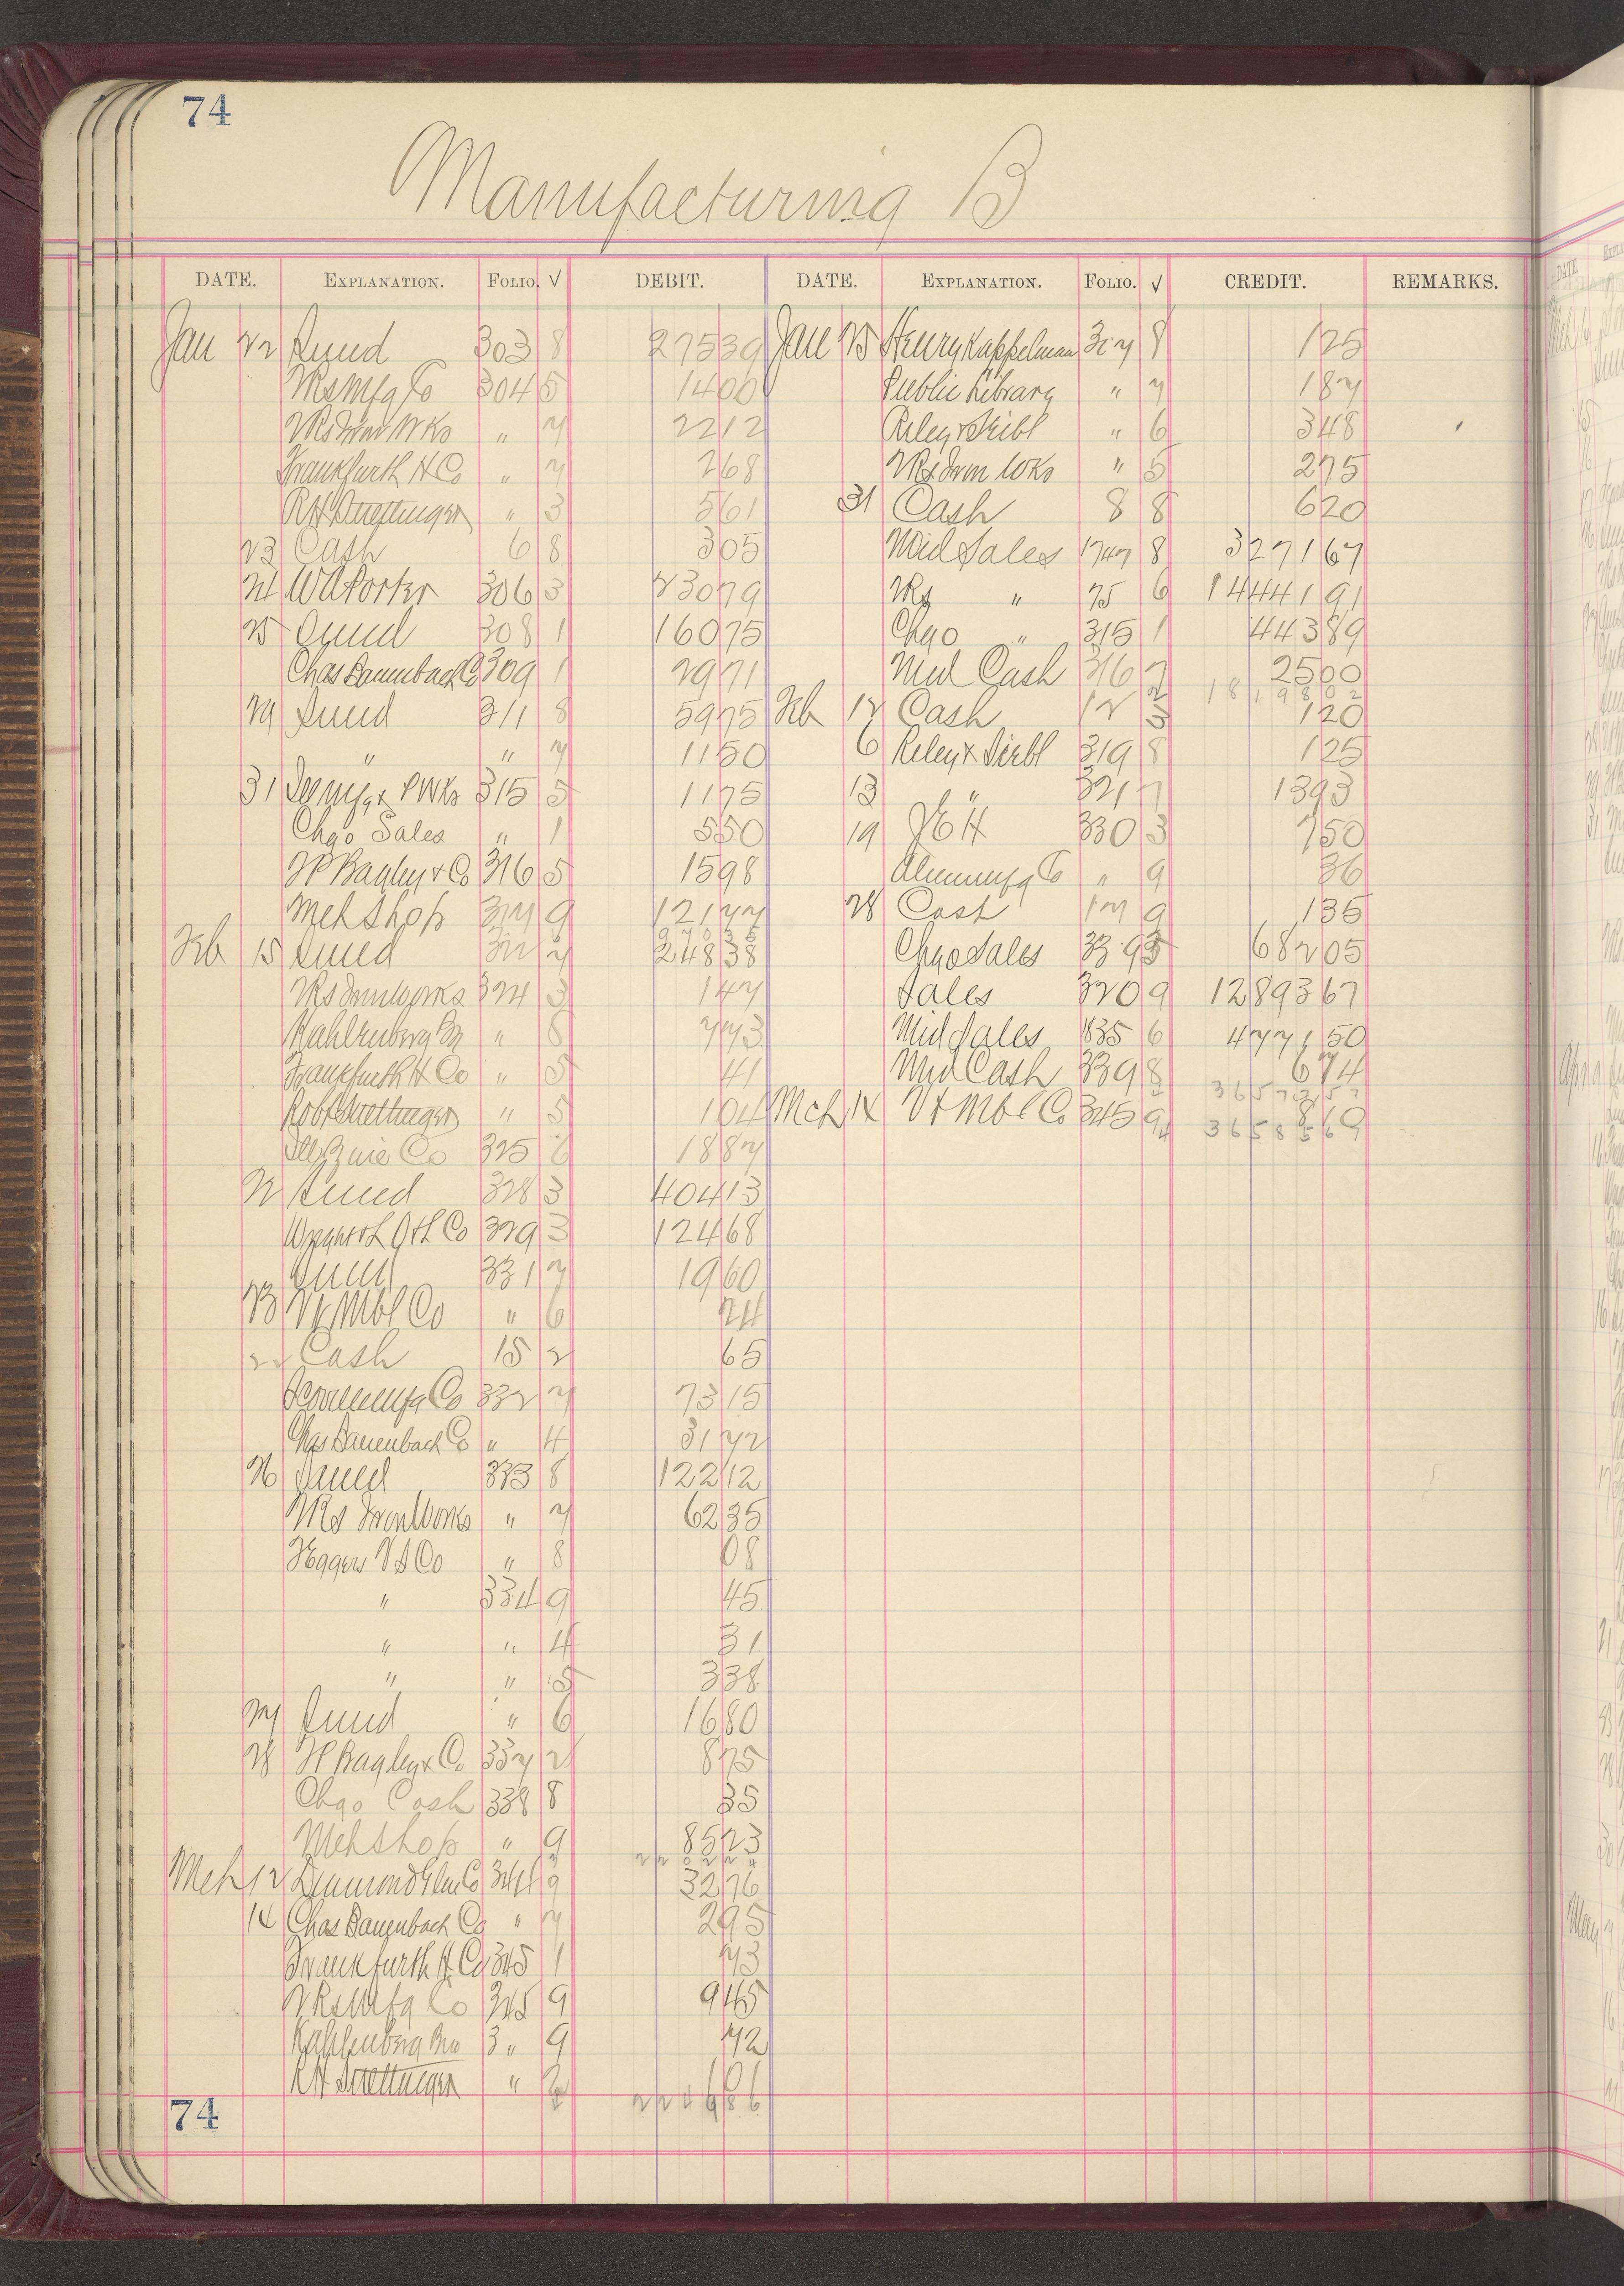 74
Manufacturing B
DATE. EXPLANATION. FOLIO. √ DEBIT. DATE. EXPLANATION. FOLIO. √ CREDIT. REMARKS.
Jan 22 Sund 303 8 27539 Jan 25 Henry Kappelman 307 8 125
2Rs Mfg Co 304 5 1400 Public Library " 7 187
2Rs Iron Wks " 7 2212 Riley & Seibl " 6 348
Frankfurth H Co " 7 268 2Rs Iron Wks " 5 275
R H Suettinger " 3 561 31 Cash 8 8 620
23 Cash 6 8 305 Mid Sales 1747 8 3271 67
24 W A Porter 306 3 23079 2Rs " 75 6 14441 91
25 Sund 308 1 16075 Chgo " 315 1 44389
Chas Dauenbach Co 309 1 2971 Mid Cash 316 7 2500
1819802
29 Sund 311 8 5975 Feb 12 Cash 12 3 120
" " 7 1150 6 Riley & Seibl 319 8 125
31 315 5 1175 13 " 321 7 1393
Chgo Sales " 1 550 19 J E H 330 3 750
H P Bagley & Co 316 5 1598 Alum Mfg Co " 9 36
Meh Shop 317 9 12177 28 Cash 17 9 135
Feb 15 Sund 322 7 24838 Chgo Sales 339 3 68205
2Rs Iron Works 324 3 147 Sales 320 9 1289367
Kahlenberg Bro " 8 773 Mid Sales 1835 6 477150
Frankfurth H Co " 5 41 Mid Cash 339 8 674
Robt Suettinger " 5 104 Mch 14 Vt Mbl Co 345 9
3658569
Ill Zinc Co 325 1887
22 Sund 328 3 40413
329 3 12468
Sund 331 7 1960
23 Vt Mbl Co " 6 24
22 Cash 15 2 65
Mfg Co 332 7 7315
Chas Dauenbach Co " 4 3172
26 Sund 333 8 12212
2Rs Iron Works " 7 6235
Eggers V S Co " 8 08
" 334 9 45
" " 4 31
" " 5 338
27 Sund " 6 1680
28 H P Bagley & Co 337 2 875
Chgo Cash 338 8 35
Meh Shop " 9 8523
Mch 12 Diamond Glue Co 341 9 3276
14 Chas Dauenbach Co " 7 295
Frankfurth H Co 345 1 73
2Rs Mfg Co 345 9 945
Kahlenberg Bro 3 " 9 72
R H Suettinger "
74